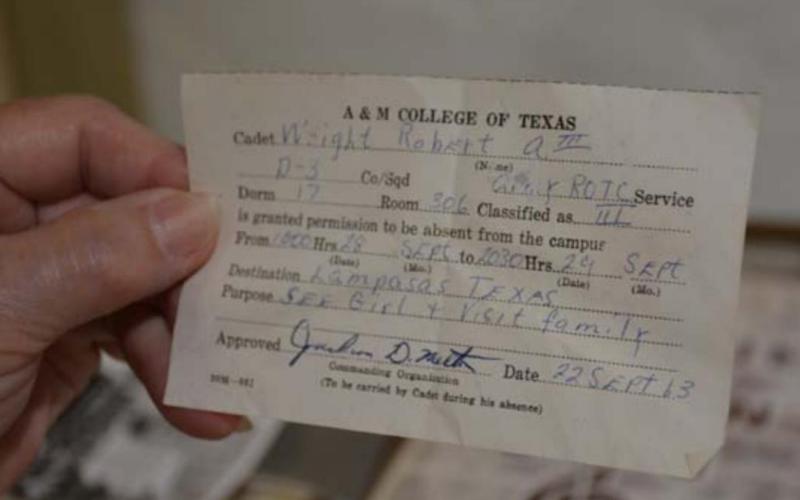 A & M COLLEGE OF TEXAS
Cadet Wright Robert A III
(Name)
D-3 Co/Sqd Army ROTC Service
Dorm 17 Room 306 Classified as III
is granted permission to be absent from the campus
From 1000 Hrs. 28 SEPT to 2030 Hrs. 29 SEPT
(Date) (Mo.) (Date) (Mo.)
Destination Lampasas TEXAS
Purpose SEE Girl + Visit family
Approved D. Date 22 SEPT 63
Commanding Organization
(To be carried by Cadet during his absence)